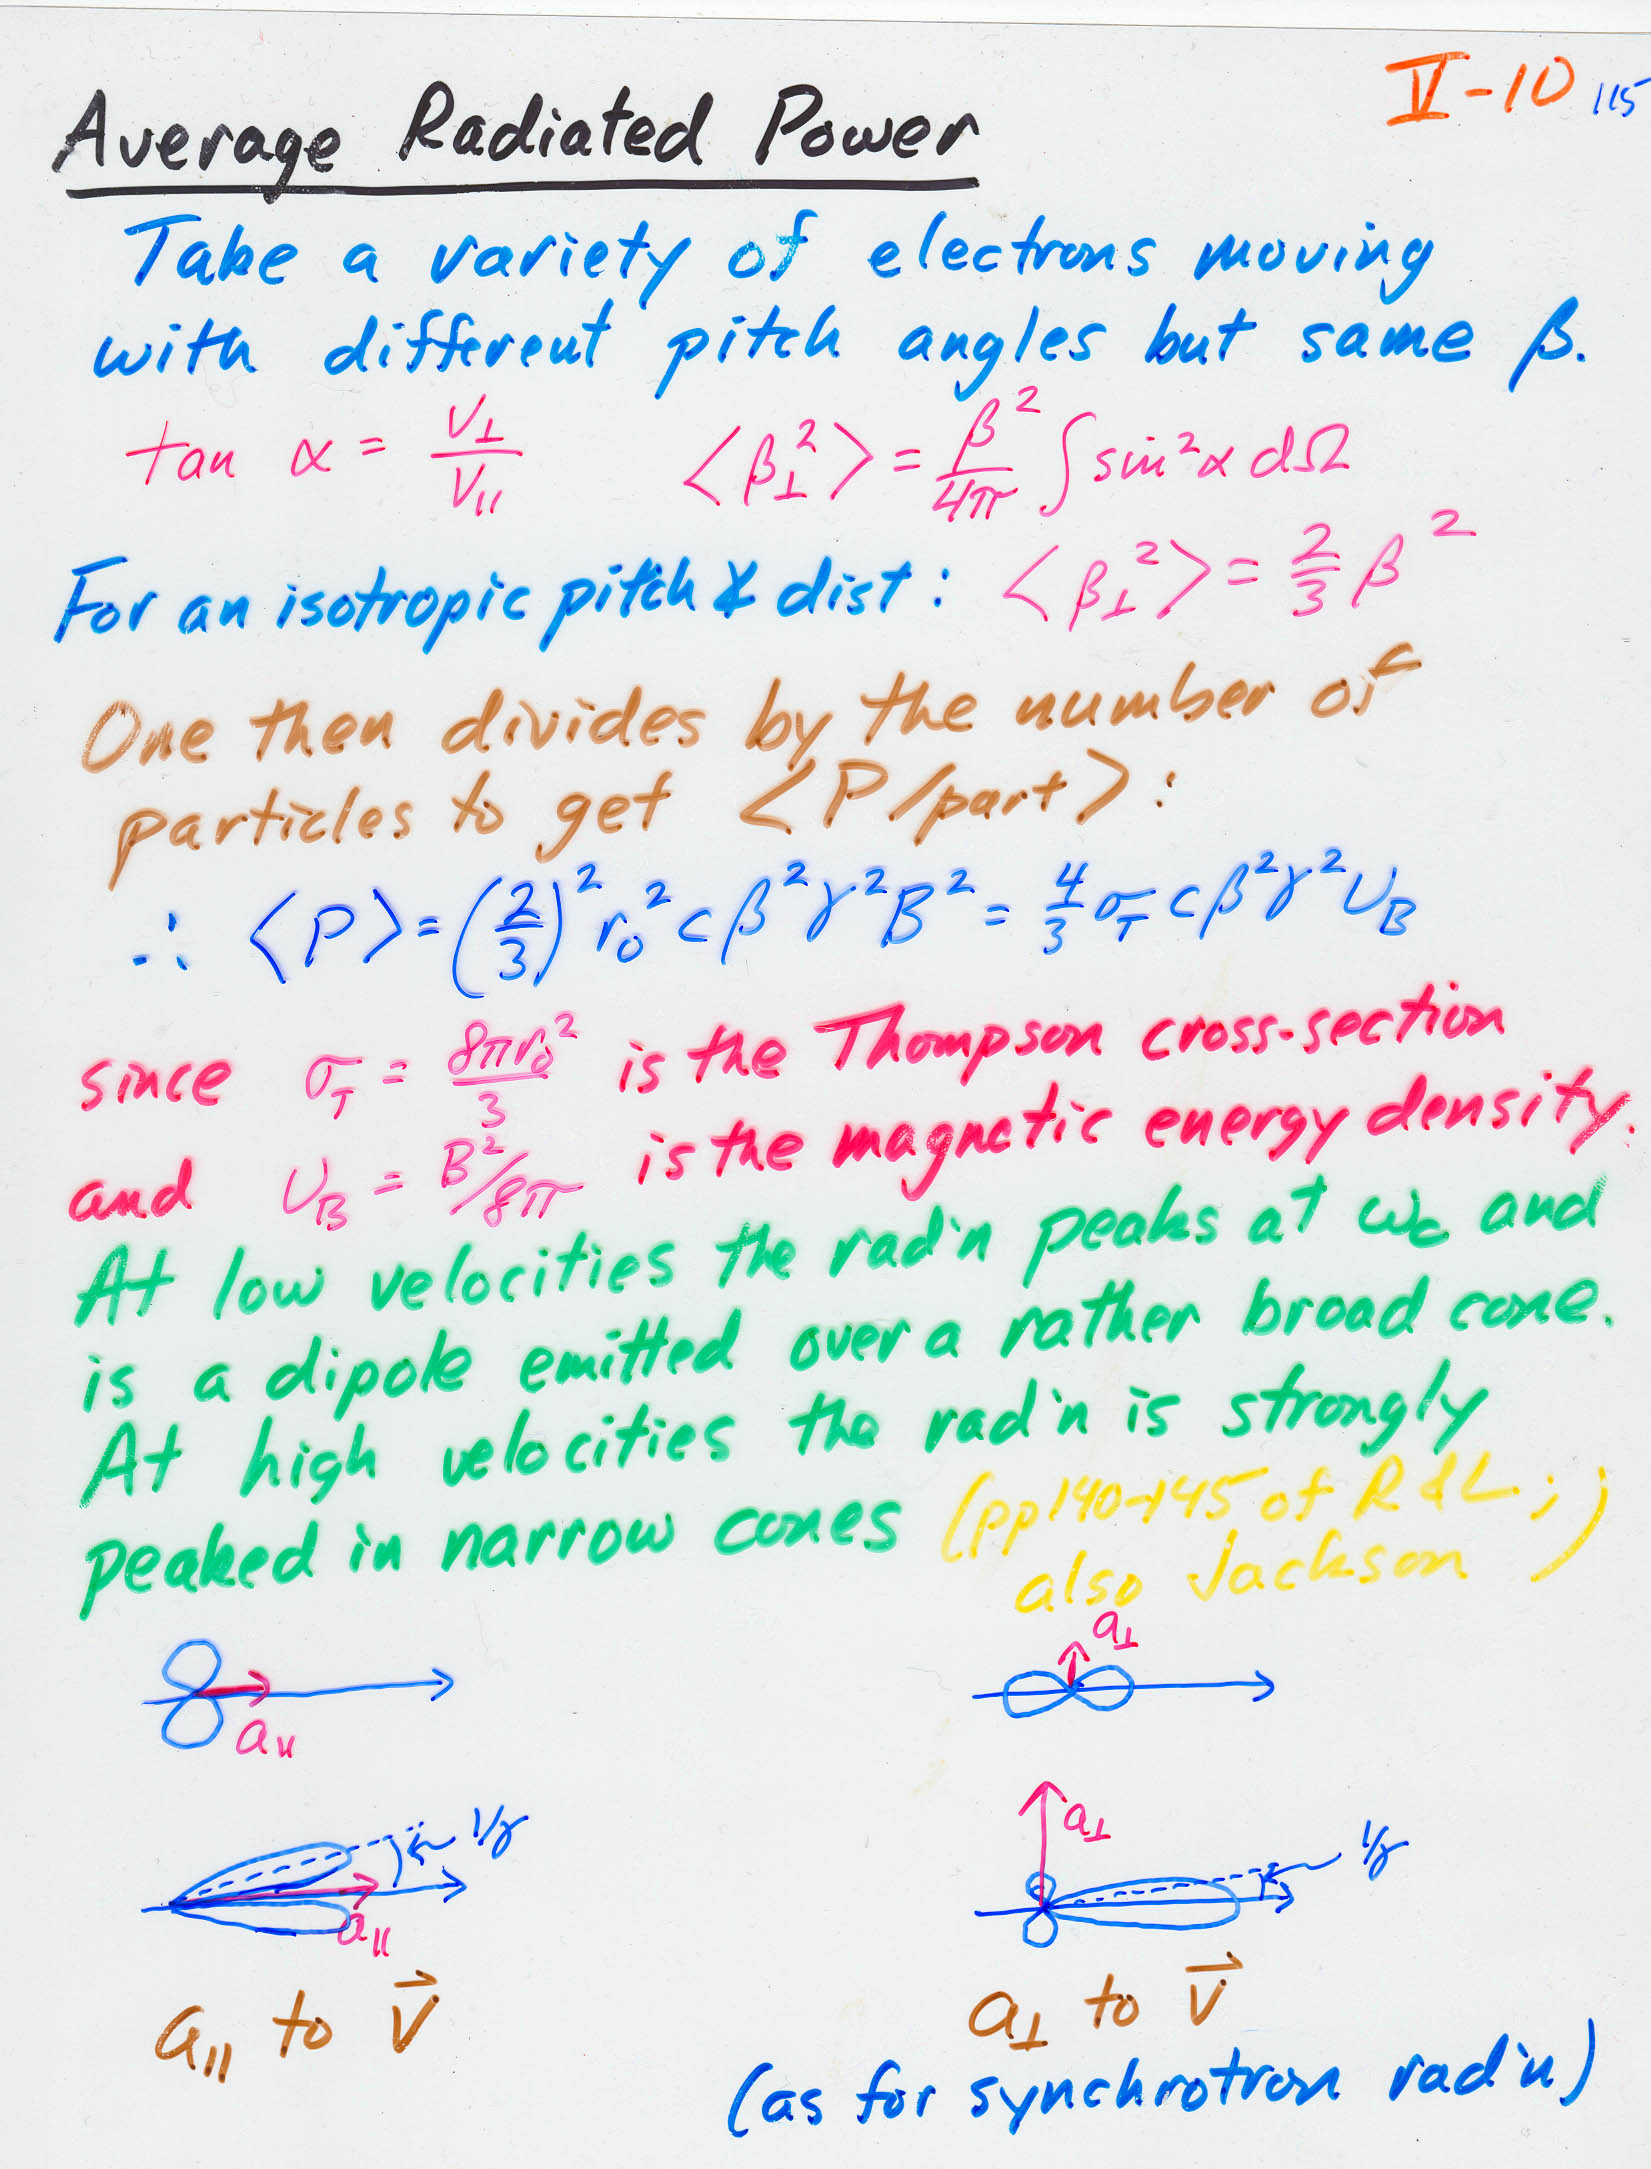 V-10 115
Average Radiated Power
Take a variety of electrons moving
with different pitch angles but same β.
tan α = V⊥/V∥ ⟨β⊥²⟩ = β²/4π ∫ sin²α dΩ
For an isotropic pitch ∡ dist: ⟨β⊥²⟩ = 2/3 β²
One then divides by the number of
particles to get ⟨P/part⟩:
∴ ⟨P⟩ = (2/3)² r₀² c β² γ² B² = 4/3 σ_T c β² γ² U_B
since σ_T = 8πr₀²/3 is the Thompson cross-section
and U_B = B²/8π is the magnetic energy density.
At low velocities the rad'n peaks at ω_c and
is a dipole emitted over a rather broad cone.
At high velocities the rad'n is strongly
peaked in narrow cones (pp140-145 of R & L.;
also Jackson)
a∥ a⊥
1/γ a∥ a⊥ 1/γ
a∥ to V⃗ a⊥ to V⃗
(as for synchrotron rad'n)